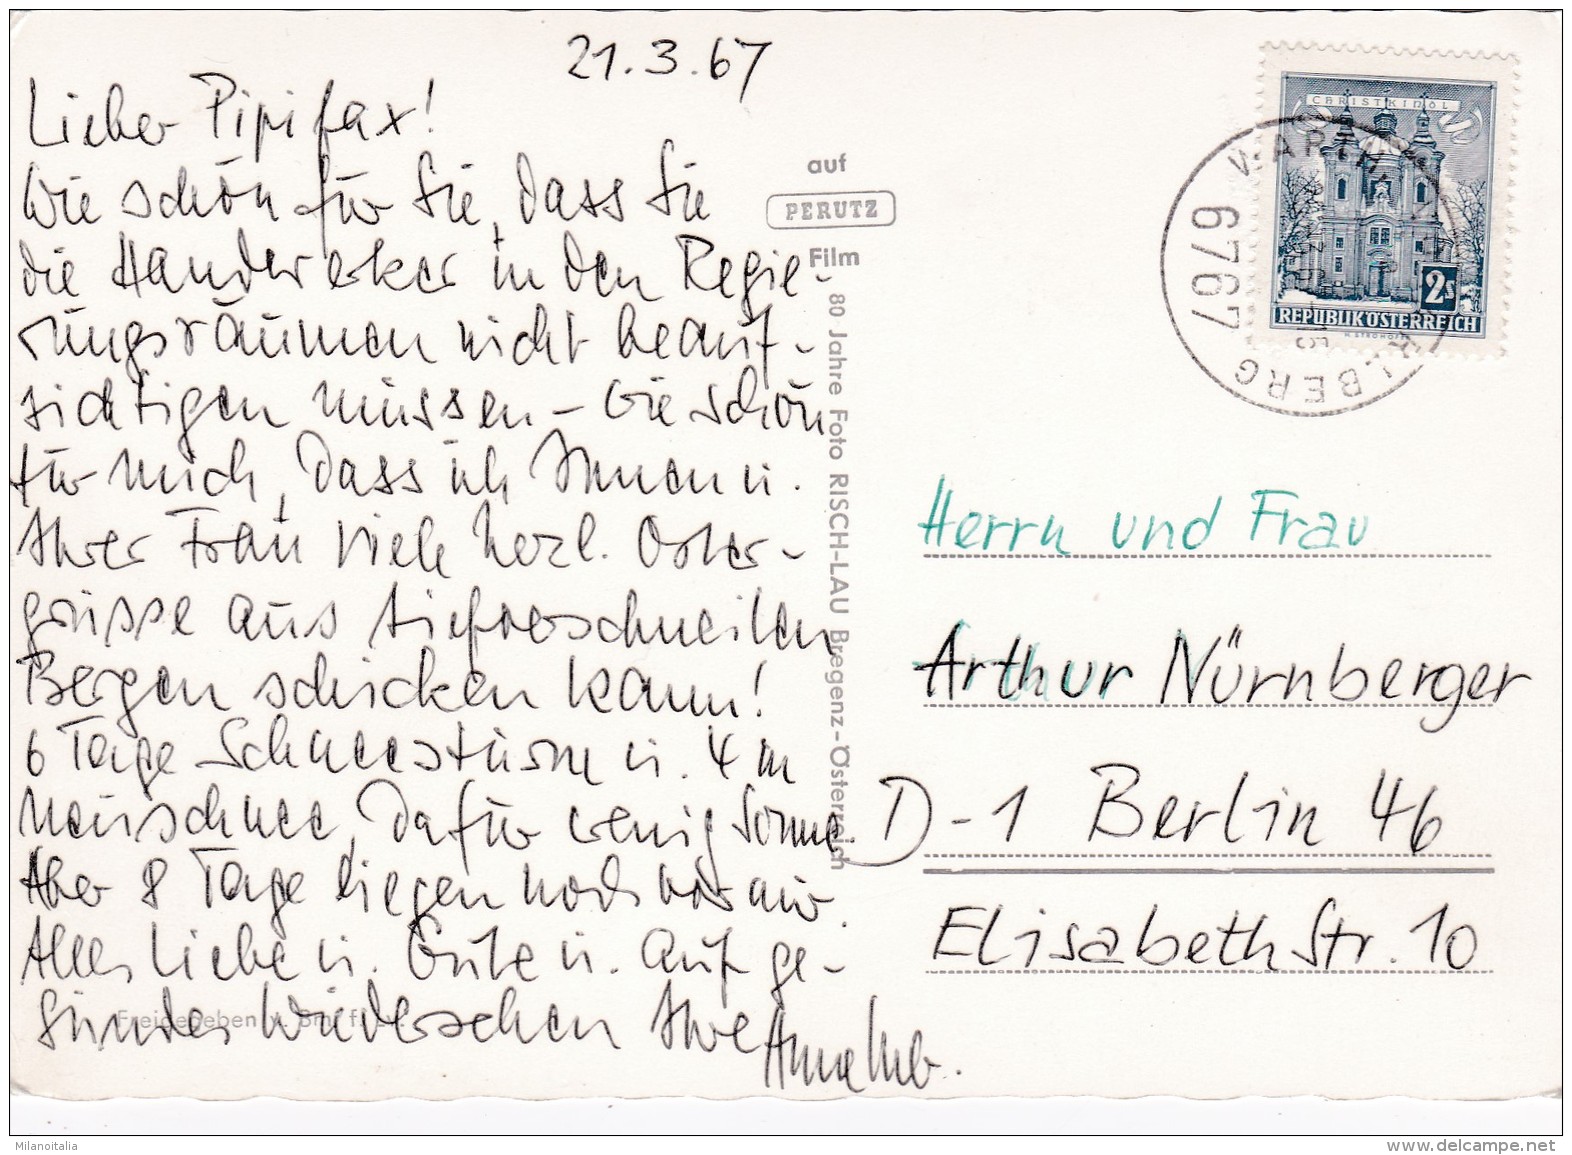 21.3.67
Lieber Pipifax!
Wie schön für Sie, dass Sie
die Handwerker in den Regie-
rungsräumen nicht beauf-
sichtigen müssen – Wie schön
für mich, dass ich Ihnen u.
Ihrer Frau viele herzl. Oster-
grüsse aus tiefverschneiten
Bergen schicken kann!
6 Tage Schneesturm u. 4 m
Neuschnee, dafür wenig Sonne
Aber 8 Tage liegen noch vor mir.
Alles Liebe u. Gute u. auf ge-
sundes Wiedersehen Ihre
auf
PERUTZ
Film
80 Jahre Foto RISCH-LAU Bregenz-Österreich
Freigegeben v.
CHRISTKINDL
2s
REPUBLIK ÖSTERREICH
6767
Herrn und Frau
Arthur Nürnberger
D-1 Berlin 46
Elisabethstr. 10
Milanoitalia
www.delcampe.net